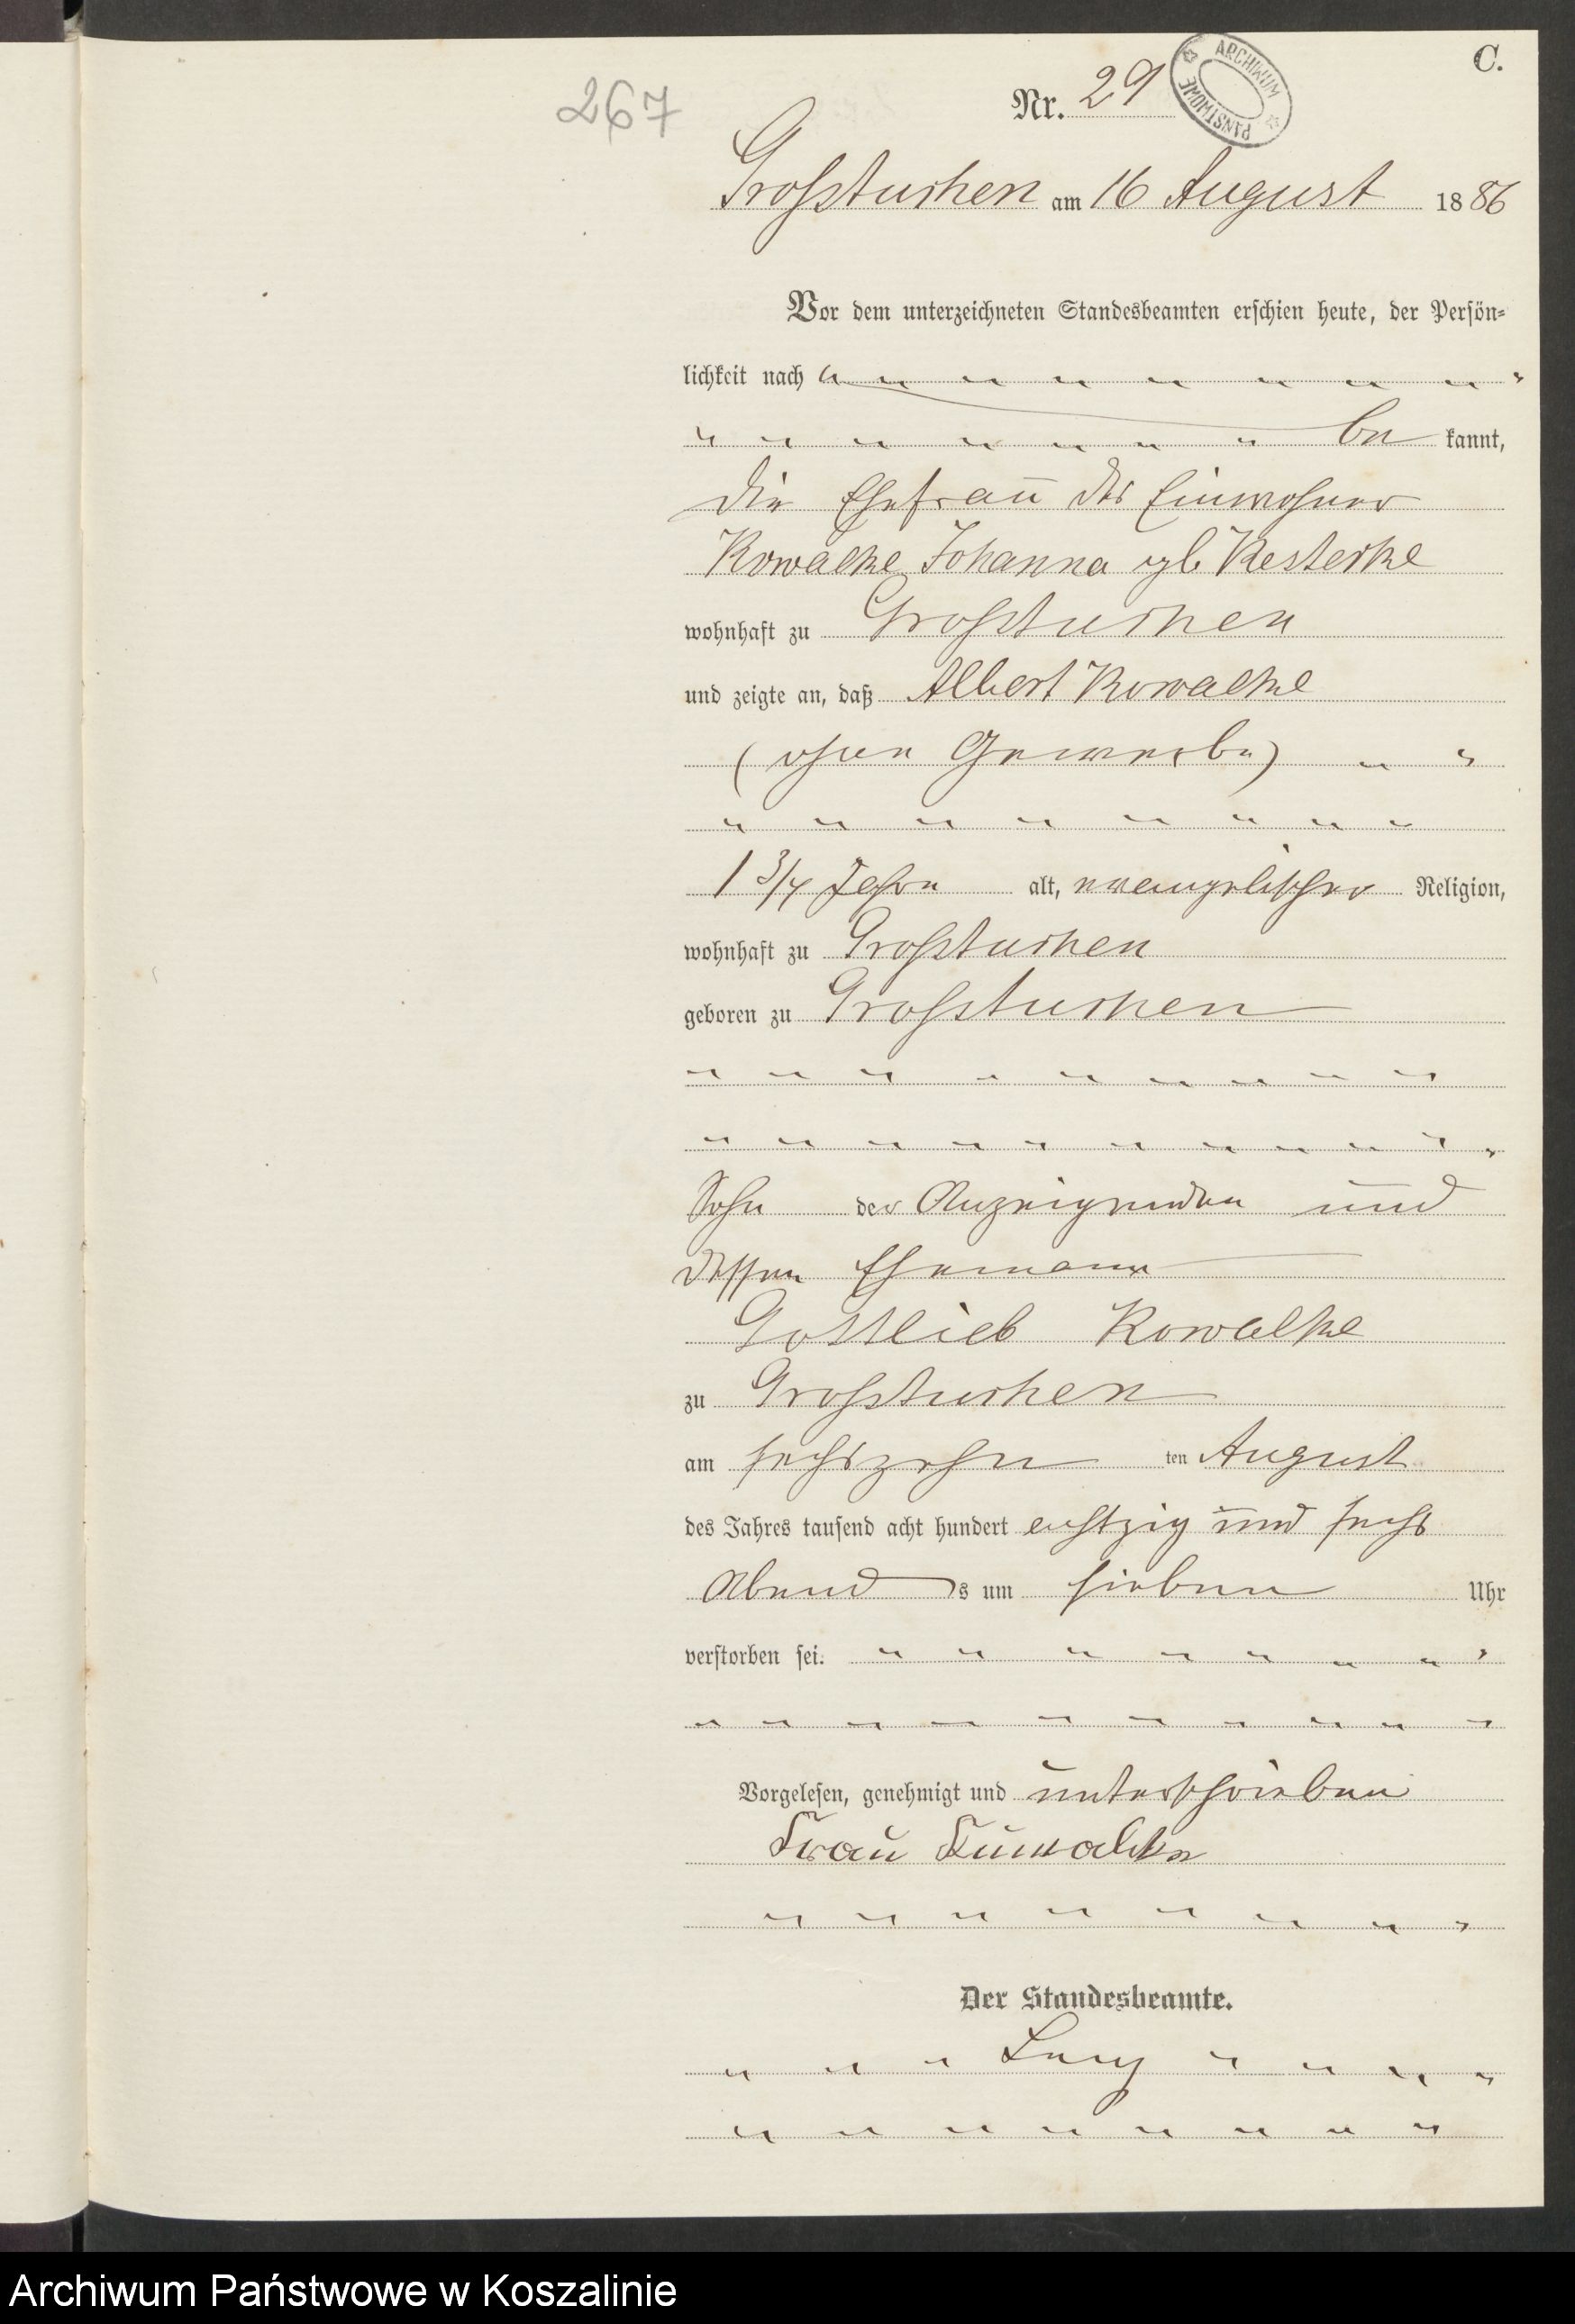 C.
267
Nr. 29
ARCHIWUM PAŃSTWOWE
Großtuchen am 16 August 1886
Vor dem unterzeichneten Standesbeamten erschien heute, der Persön-
lichkeit nach
be kannt,
die Ehefrau des Einwohner
Kowalke Johanna gb
wohnhaft zu Großtuchen
und zeigte an, daß Albert Kowalke
(ohne Gewerbe)
1 3/4 Jahre alt, evangelischer Religion,
wohnhaft zu Großtuchen
geboren zu Großtuchen
Sohn der Anzeigenden und
dessen Ehemann
Gottlieb Kowalke
zu Großtuchen
am sechszehn ten August
des Jahres tausend acht hundert achtzig und sechs
Abend s um sieben Uhr
verstorben sei.
Vorgelesen, genehmigt und unterschrieben
Frau Kuwalke
Der Standesbeamte.
Archiwum Państwowe w Koszalinie